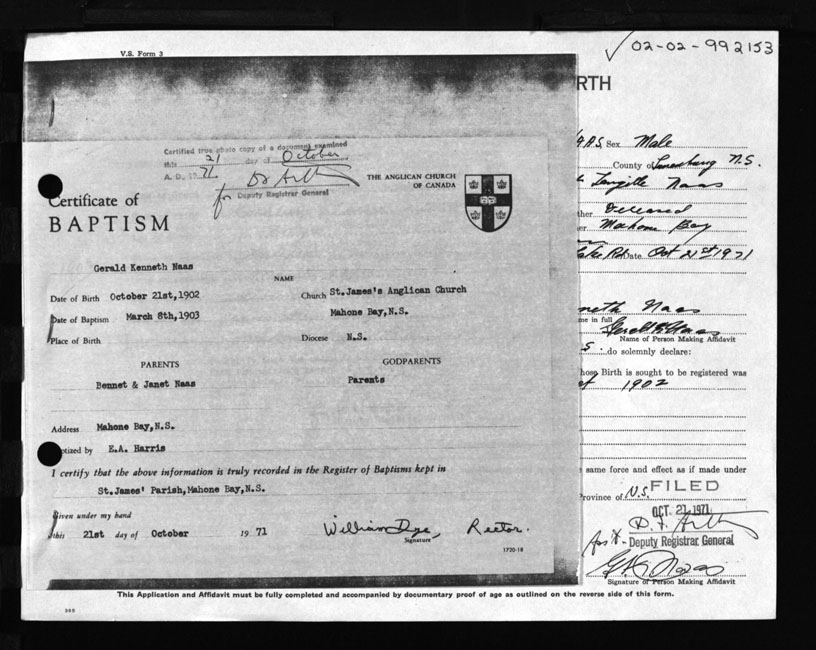 V.S. Form 3
02-02-992153
RTH
Certified true photo copy of a document examined
this 21 day of October
A. D., 19 71
for Deputy Registrar General
THE ANGLICAN CHURCH
OF CANADA
Certificate of
BAPTISM
Gerald Kenneth Naas
NAME
Date of Birth October 21st,1902
Church St.James's Anglican Church
Date of Baptism March 8th,1903
Mahone Bay,N.S.
Place of Birth
Diocese N.S.
PARENTS
GODPARENTS
Bennet & Janet Naas
Parents
Address Mahone Bay,N.S.
ptized by E.A. Harris
I certify that the above information is truly recorded in the Register of Baptisms kept in
St.James' Parish,Mahone Bay,N.S.
Given under my hand
this 21st day of October 19 71
William Dye, Rector.
Signature
1720-18
AAS Sex Male
County of Lunenburg N.S.
Langille Naas
ther Deceased
er Mahone Bay
Date Oct 21st 1971
neth Naas
me in full
Name of Person Making Affidavit
S. do solemnly declare:
hose Birth is sought to be registered was
1902
same force and effect as if made under
Province of N.S.
FILED
OCT. 21 1971
Deputy Registrar General
Signature of Person Making Affidavit
This Application and Affidavit must be fully completed and accompanied by documentary proof of age as outlined on the reverse side of this form.